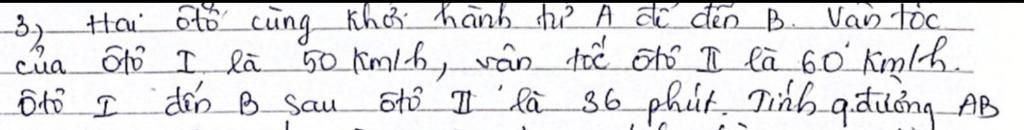 3) Hai ôtô cùng khởi hành từ A để đến B. Vận tốc
của ôtô I là 50 Km/h, vân tốc ôtô II là 60 Km/h.
Ôtô I đến B sau ôtô II là 36 phút. Tính q.đường AB